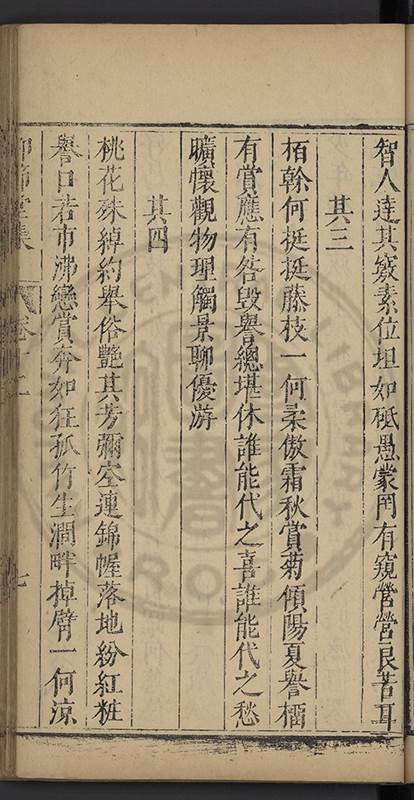 智人達其竅素位坦如砥愚蒙罔有窺營營良苦耳
其三
栢幹何挺挺藤枝一何柔傲霜秋賞菊傾陽夏譽榴
有賞應有咎毀譽總堪休誰能代之喜誰能代之愁
曠懷觀物理觸景聊優游
其四
桃花殊綽約舉俗艷其芳彌空連錦幄落地紛紅粧
譽口若市沸戀賞奔如狂孤竹生澗畔掉臂一何涼
堂集 卷十二 七